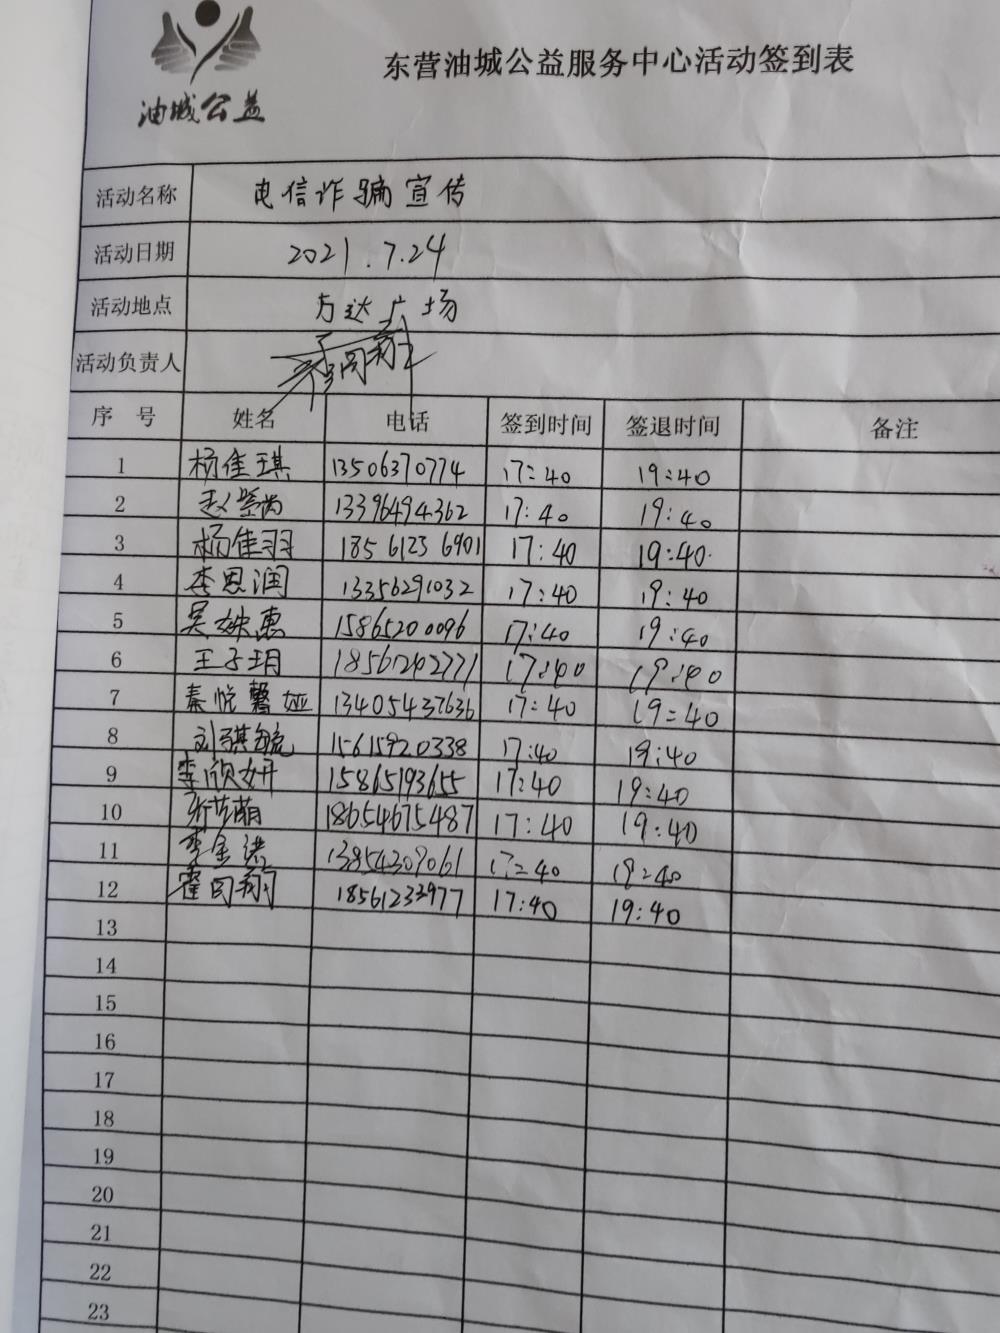 油城公益
东营油城公益服务中心活动签到表
活动名称 电信诈骗宣传
活动日期 2021.7.24
活动地点 万达广场
活动负责人
序 号 姓名 电话 签到时间 签退时间 备注
1 杨佳琪 13506370774 17:40 19:40
2 赵 13396494362 17:40 19:40
3 杨佳羽 18561236901 17:40 19:40
4 李思润 13356291032 17:40 19:40
5 吴姝惠 15865200096 17:40 19:40
6 王子玥 18561202771 17:40 19:40
7 秦悦馨娅 13405437636 17:40 19:40
8 刘祺毓 15615920338 17:40 19:40
9 李欣妍 15865193655 17:40 19:40
10 18654675487 17:40 19:40
11 李金洪 13854309061 17:40 19:40
12 霍 18561233977 17:40 19:40
13
14
15
16
17
18
19
20
21
22
23